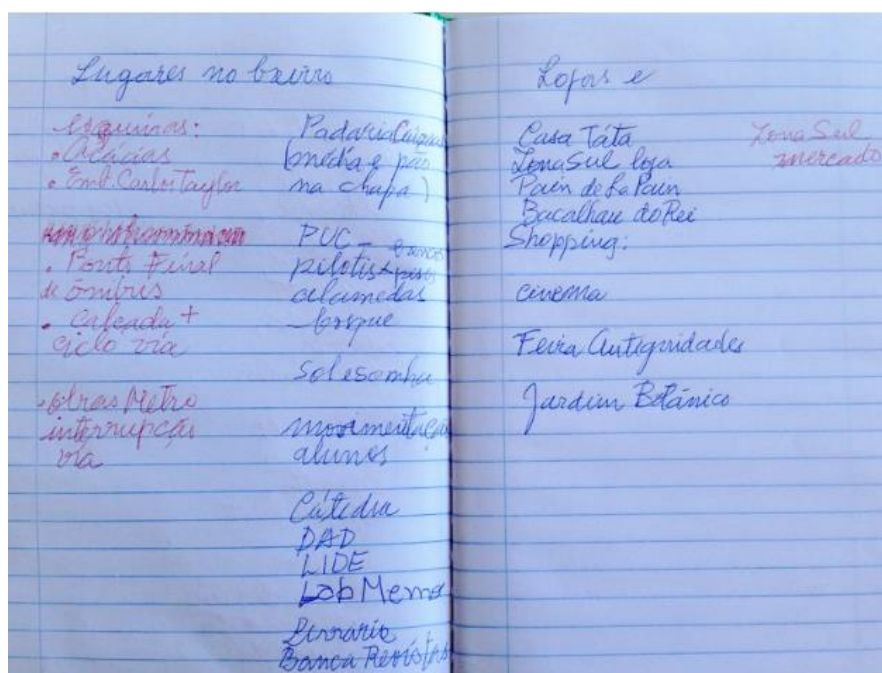 Lugares no bairro
Esquinas:
• Acácias
• Emb. Carlos Taylor
• Ponto Final
de ônibus
• Calçada +
ciclo via
• obras Metro
interrupção
via
Padaria
(média e pão
na chapa)
PUC –
pilotis +
alamedas
– bosque
Sol e sombra
movimentação
alunos
Cátedra
DAD
LIDE
Lob Memo
Livraria
Banca Revistas
Lojas e
Casa Táta
Zona Sul loja
Pain de La Pain
Bacalhau do Rei
Shopping:
cinema
Feira Antiguidades
Jardim Botânico
Zona Sul
mercado